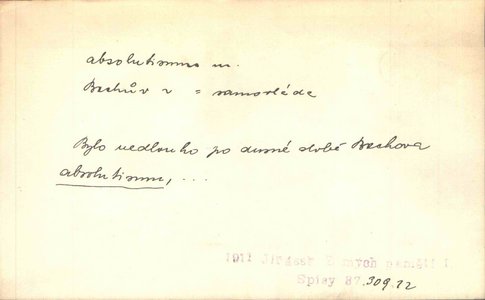 absolutismus m.
Bachův ~ = samovláda
Bylo nedlouho po dusné době Bachova
absolutismu, ...
1911 Jirásek Z mých pamětí I
Spisy 37.309.22